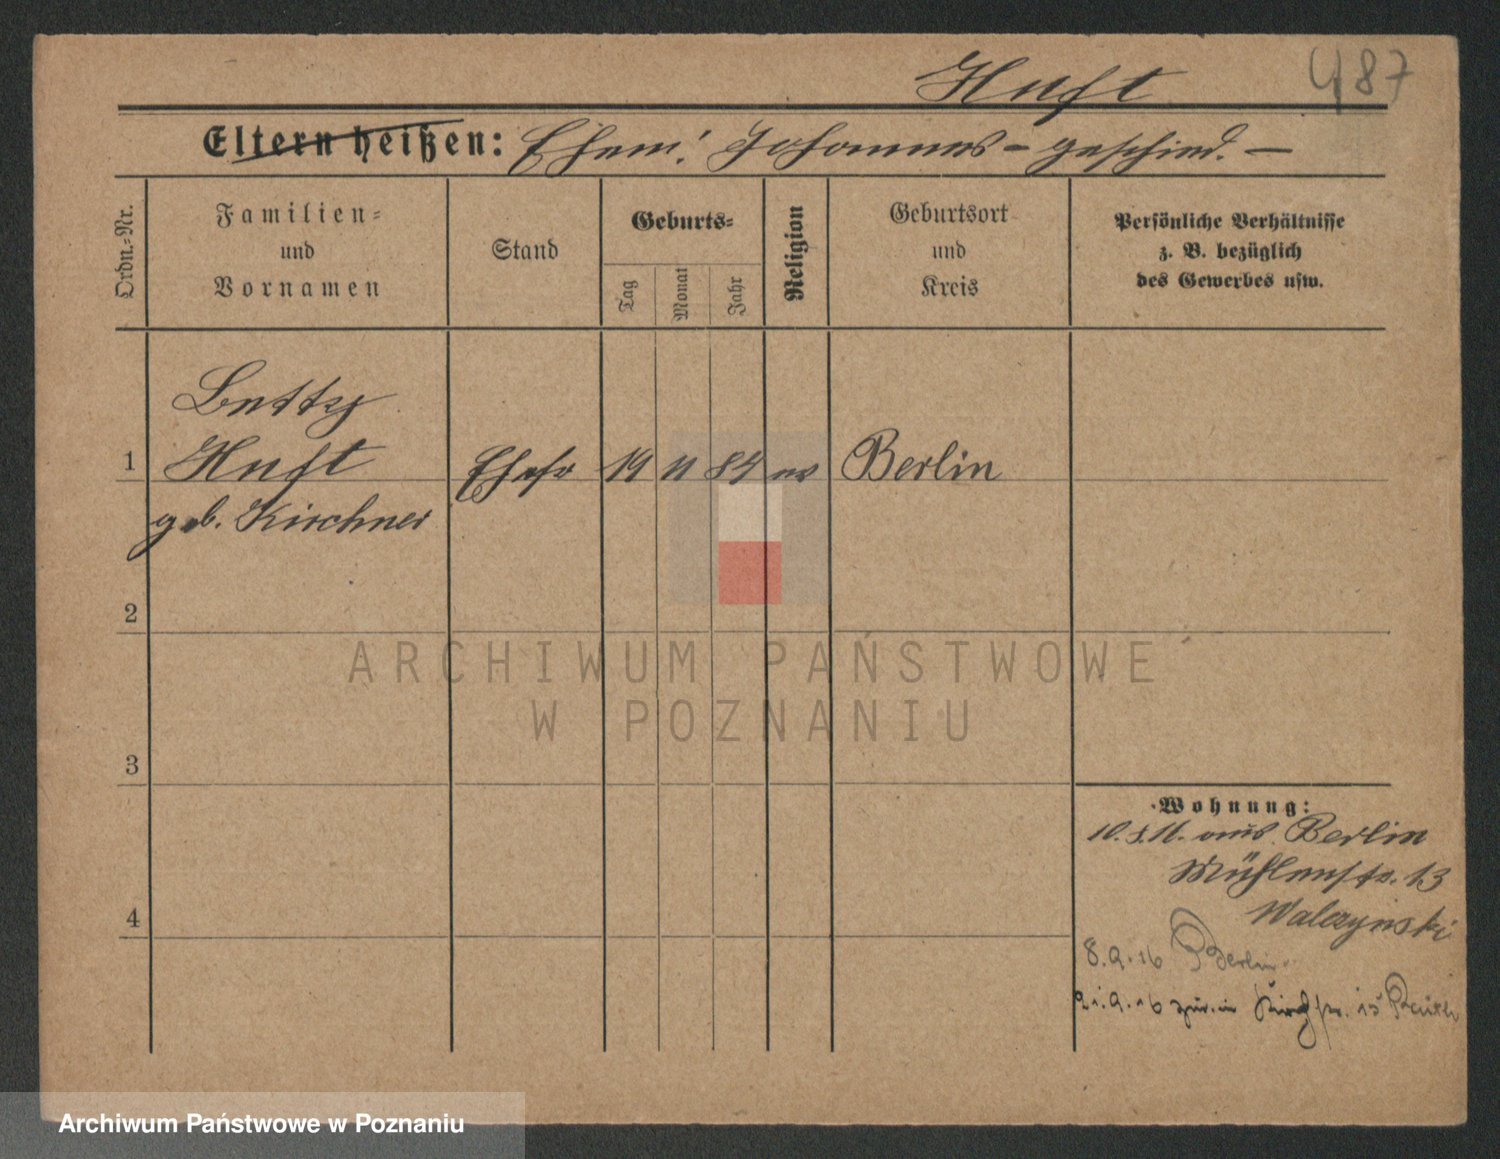 Huft
487
Eltern heißen: Ehem. Johannes - geschied. -
Ordn.-Nr.
Familien-
und
Vornamen
Stand
Geburts-
Tag
Monat
Jahr
Religion
Geburtsort
und
Kreis
Persönliche Verhältnisse
z. B. bezüglich
des Gewerbes usw.
Betty
1 Huft Ehefr 19 11 84 ev Berlin
geb. Kirchner
2
3
4
Wohnung:
10. 5. 16. aus Berlin
Mühlenstr. 13
Walczynski
8.9.16 Berlin
21.9.16 zur. in 15
ARCHIWUM PAŃSTWOWE
W POZNANIU
Archiwum Państwowe w Poznaniu